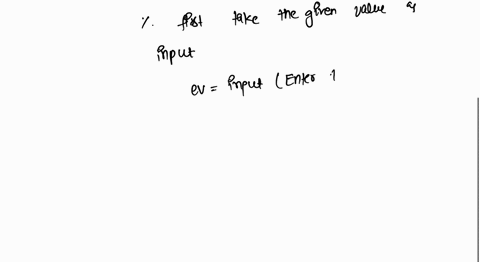 %. first take the given value as
input
ev = input (Enter